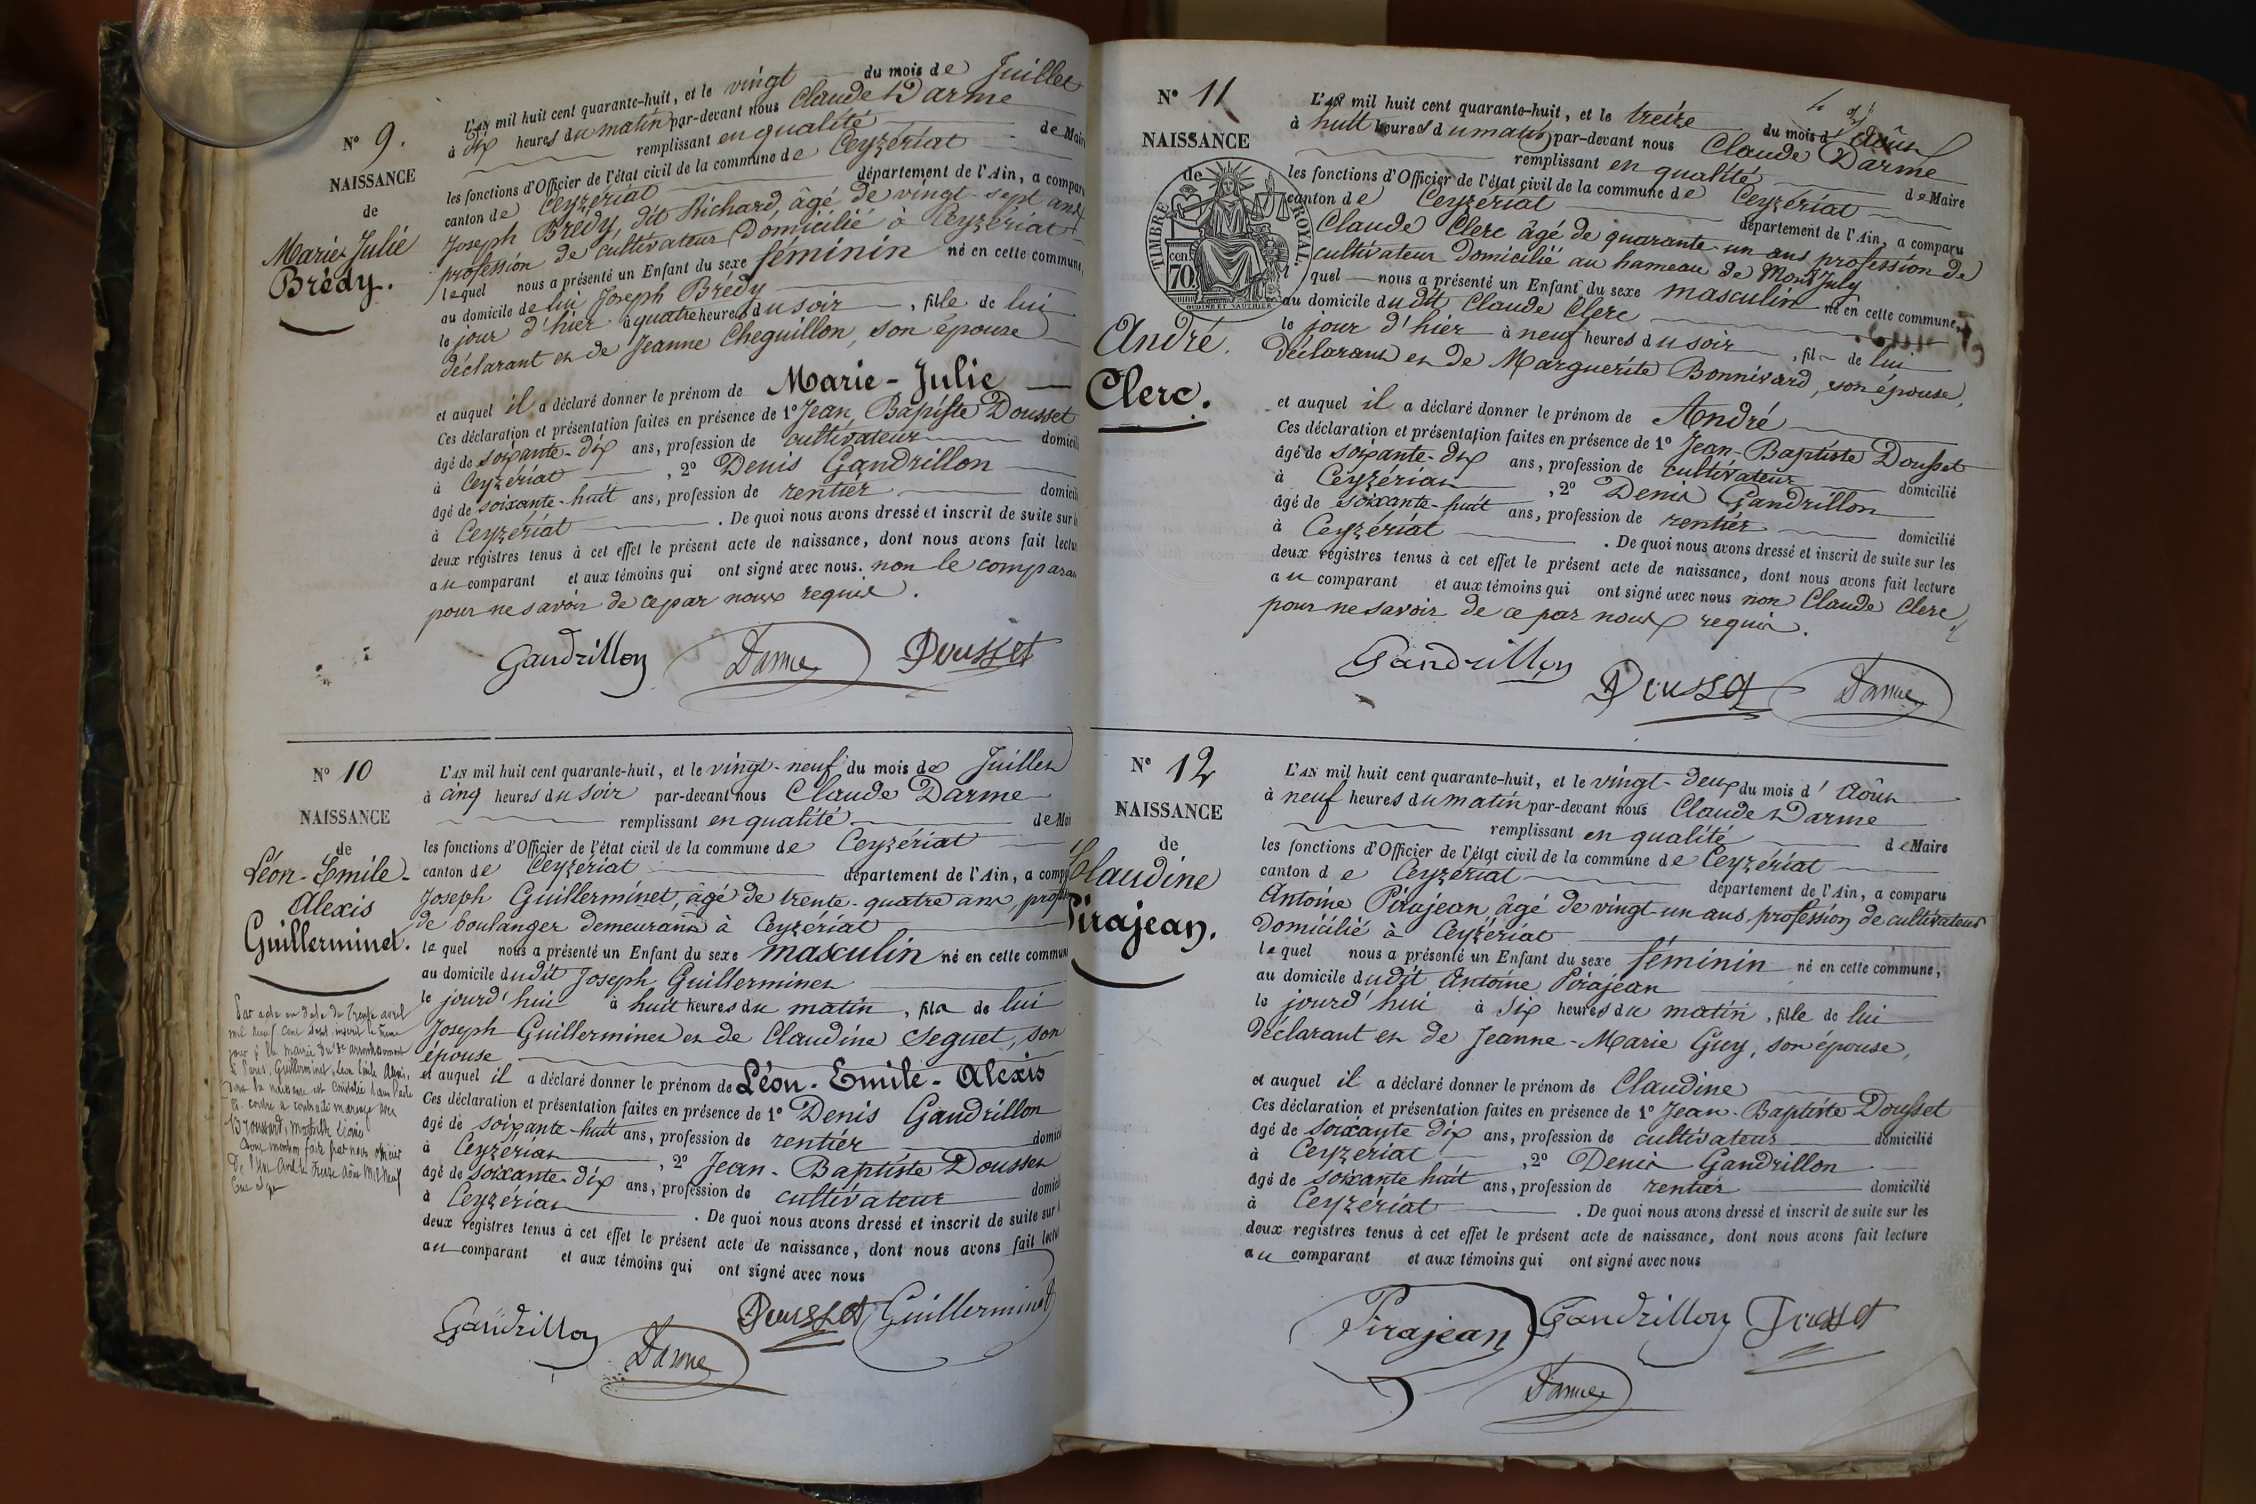 N° 9.
NAISSANCE
de
Marie Julie
Brédy.
L'AN mil huit cent quarante-huit, et le vingt du mois de Juillet
à dix heures du matin par-devant nous Claude Darme
remplissant en qualité de Maire
les fonctions d'Officier de l'état civil de la commune de Ceyzériat
canton de Ceyzériat département de l'Ain, a comparu
Joseph Brédy, dit Richard, âgé de vingt-sept ans
profession de cultivateur domicilié à Ceyzériat
lequel nous a présenté un Enfant du sexe féminin né en cette commune,
au domicile de lui Joseph Brédy
le jour d'hier à quatre heures du soir, fille de lui
déclarant et de Jeanne Cheguillon, son épouse
et auquel il a déclaré donner le prénom de Marie-Julie
Ces déclaration et présentation faites en présence de 1° Jean Baptiste Dousset
âgé de soixante-dix ans, profession de cultivateur domicili
à Ceyzériat, 2° Denis Gandrillon
âgé de soixante-huit ans, profession de rentier domicili
à Ceyzériat. De quoi nous avons dressé et inscrit de suite sur l
deux registres tenus à cet effet le présent acte de naissance, dont nous avons fait lectu
au comparant et aux témoins qui ont signé avec nous. non le comparan
pour ne savoir de ce par nous requis.
Gandrillon Darme Dousset
N° 10
NAISSANCE
de
Léon-Emile-
Alexis
Guillerminet.
Par acte en date du trente avril
mil neuf cent sept, inscrit le même
jour à la mairie du arrondissement
de Paris, Guillerminet, Léon Emile Alexis,
dont la naissance est constatée dans l'acte
ci-contre a contracté mariage avec
L'AN mil huit cent quarante-huit, et le vingt-neuf du mois de Juillet
à cinq heures du soir par-devant nous Claude Darme
remplissant en qualité de Mai
les fonctions d'Officier de l'état civil de la commune de Ceyzériat
canton de Ceyzériat département de l'Ain, a comp
Joseph Guillerminet, âgé de trente-quatre ans, prof
de boulanger demeurant à Ceyzériat
lequel nous a présenté un Enfant du sexe masculin né en cette commun
au domicile dudit Joseph Guillerminet
le jourd'hui à huit heures du matin, fils de lui
Joseph Guillerminet et de Claudine Seguet, son
épouse
et auquel il a déclaré donner le prénom de Léon-Emile-Alexis
Ces déclaration et présentation faites en présence de 1° Denis Gandrillon
âgé de soixante-huit ans, profession de rentier domici
à Ceyzériat, 2° Jean-Baptiste Dousset
âgé de soixante-dix ans, profession de cultivateur domici
à Ceyzériat. De quoi nous avons dressé et inscrit de suite sur l
deux registres tenus à cet effet le présent acte de naissance, dont nous avons fait lectu
au comparant et aux témoins qui ont signé avec nous
Gandrillon Darme Dousset Guillerminet
N° 11
NAISSANCE
de
TIMBRE ROYAL.
70 cen
OUDINE ET VAUTHIER
André
Clerc.
L'AN mil huit cent quarante-huit, et le treize du mois d'Août
à huit heures du matin par-devant nous Claude Darme
remplissant en qualité de Maire
les fonctions d'Officier de l'état civil de la commune de Ceyzériat
canton de Ceyzériat département de l'Ain, a comparu
Claude Clerc âgé de quarante-un ans profession de
cultivateur domicilié au hameau de Mont July
quel nous a présenté un Enfant du sexe masculin né en cette commune,
au domicile dudit Claude Clerc
le jour d'hier à neuf heures du soir, fil de lui
déclarant et de Marguerite Bonnivard, son épouse,
et auquel il a déclaré donner le prénom de André
Ces déclaration et présentation faites en présence de 1° Jean-Baptiste Dousset
âgé de soixante-dix ans, profession de cultivateur domicilié
à Ceyzériat, 2° Denis Gandrillon
âgé de soixante-huit ans, profession de rentier domicilié
à Ceyzériat. De quoi nous avons dressé et inscrit de suite sur les
deux registres tenus à cet effet le présent acte de naissance, dont nous avons fait lecture
au comparant et aux témoins qui ont signé avec nous non Claude Clerc
pour ne savoir de ce par nous requis.
Gandrillon Dousset Darme
N° 12
NAISSANCE
de
Claudine
Pirajean.
L'AN mil huit cent quarante-huit, et le vingt-deux du mois d'Août
à neuf heures du matin par-devant nous Claude Darme
remplissant en qualité de Maire
les fonctions d'Officier de l'état civil de la commune de Ceyzériat
canton de Ceyzériat département de l'Ain, a comparu
Antoine Pirajean, âgé de vingt-un ans, profession de cultivateur
domicilié à Ceyzériat
lequel nous a présenté un Enfant du sexe féminin né en cette commune,
au domicile dudit Antoine Pirajean
le jourd'hui à six heures du matin, fille de lui
déclarant et de Jeanne-Marie Guy, son épouse,
et auquel il a déclaré donner le prénom de Claudine
Ces déclaration et présentation faites en présence de 1° Jean-Baptiste Dousset
âgé de soixante dix ans, profession de cultivateur domicilié
à Ceyzériat, 2° Denis Gandrillon
âgé de soixante huit ans, profession de rentier domicilié
à Ceyzériat. De quoi nous avons dressé et inscrit de suite sur les
deux registres tenus à cet effet le présent acte de naissance, dont nous avons fait lecture
au comparant et aux témoins qui ont signé avec nous
Pirajean Gandrillon Dousset
Darme